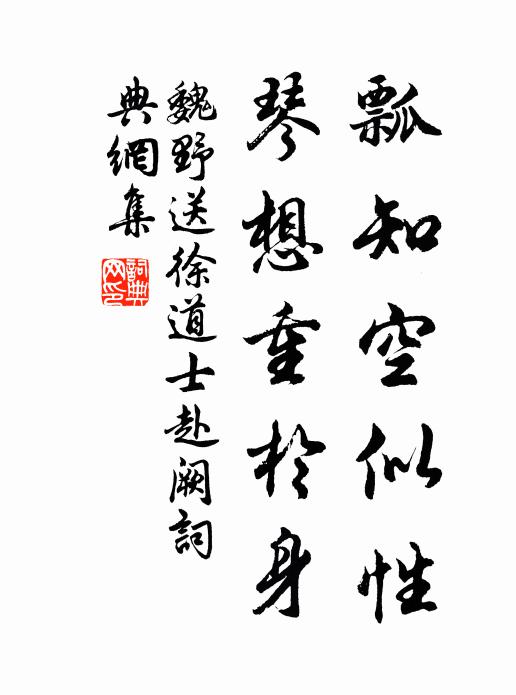 瓢知空似性
琴想重於身
魏野送徐道士赴闕詞
典網集
詞典
网印